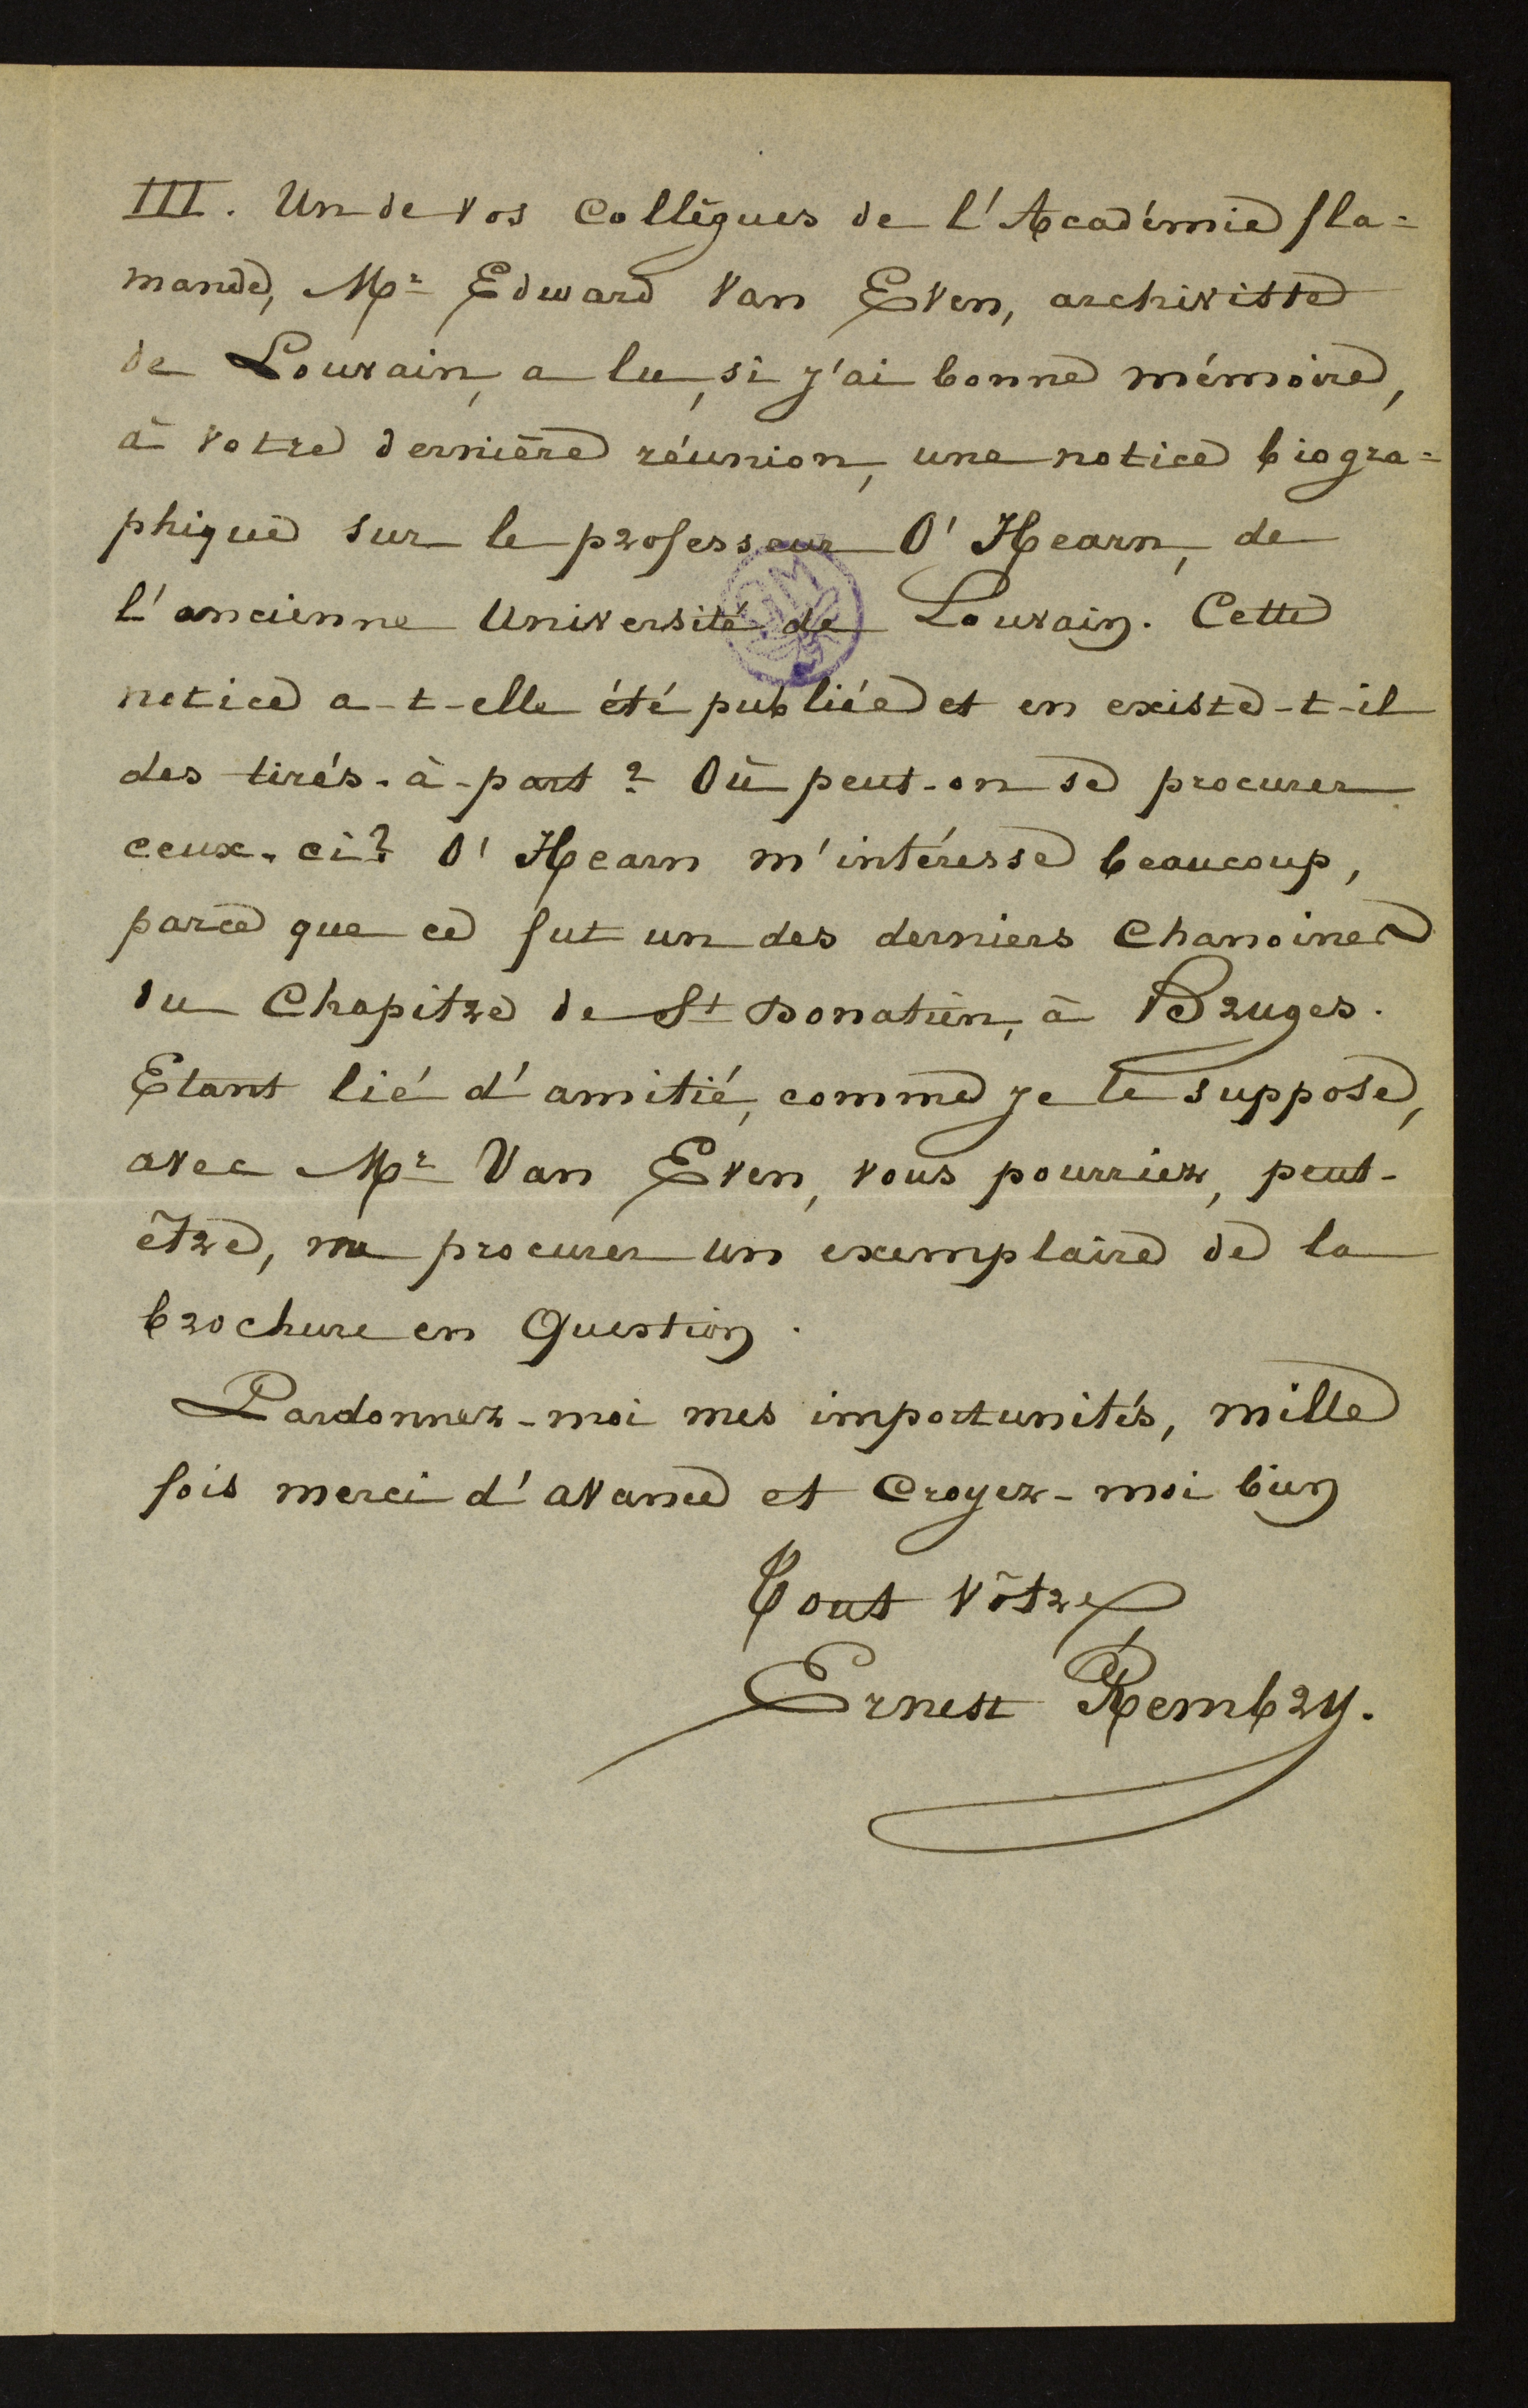 III. Un de vos collègues de l'Académie fla=
mande, Mr Edward Van Even, archiviste
de Louvain, a lu, si j'ai bonne mémoire,
à votre dernière réunion, une notice biogra=
phique sur le professeur O'Hearn, de
l'ancienne Université de Louvain. Cette
notice a-t-elle été publiée et en existe-t-il
des tirés-à-part ? Où peut-on se procurer
ceux-ci ? O'Hearn m'intéresse beaucoup,
parce que ce fut un des derniers chanoines
du Chapitre de St Donatien, à Bruges.
Etant lié d'amitié, comme je le suppose,
avec Mr Van Even, vous pourriez, peut-
être, me procurer un exemplaire de la
brochure en question.
Pardonnez-moi mes importunités, mille
fois merci d'avance et croyez-moi bien
Tout vôtre
Ernest Rembry.